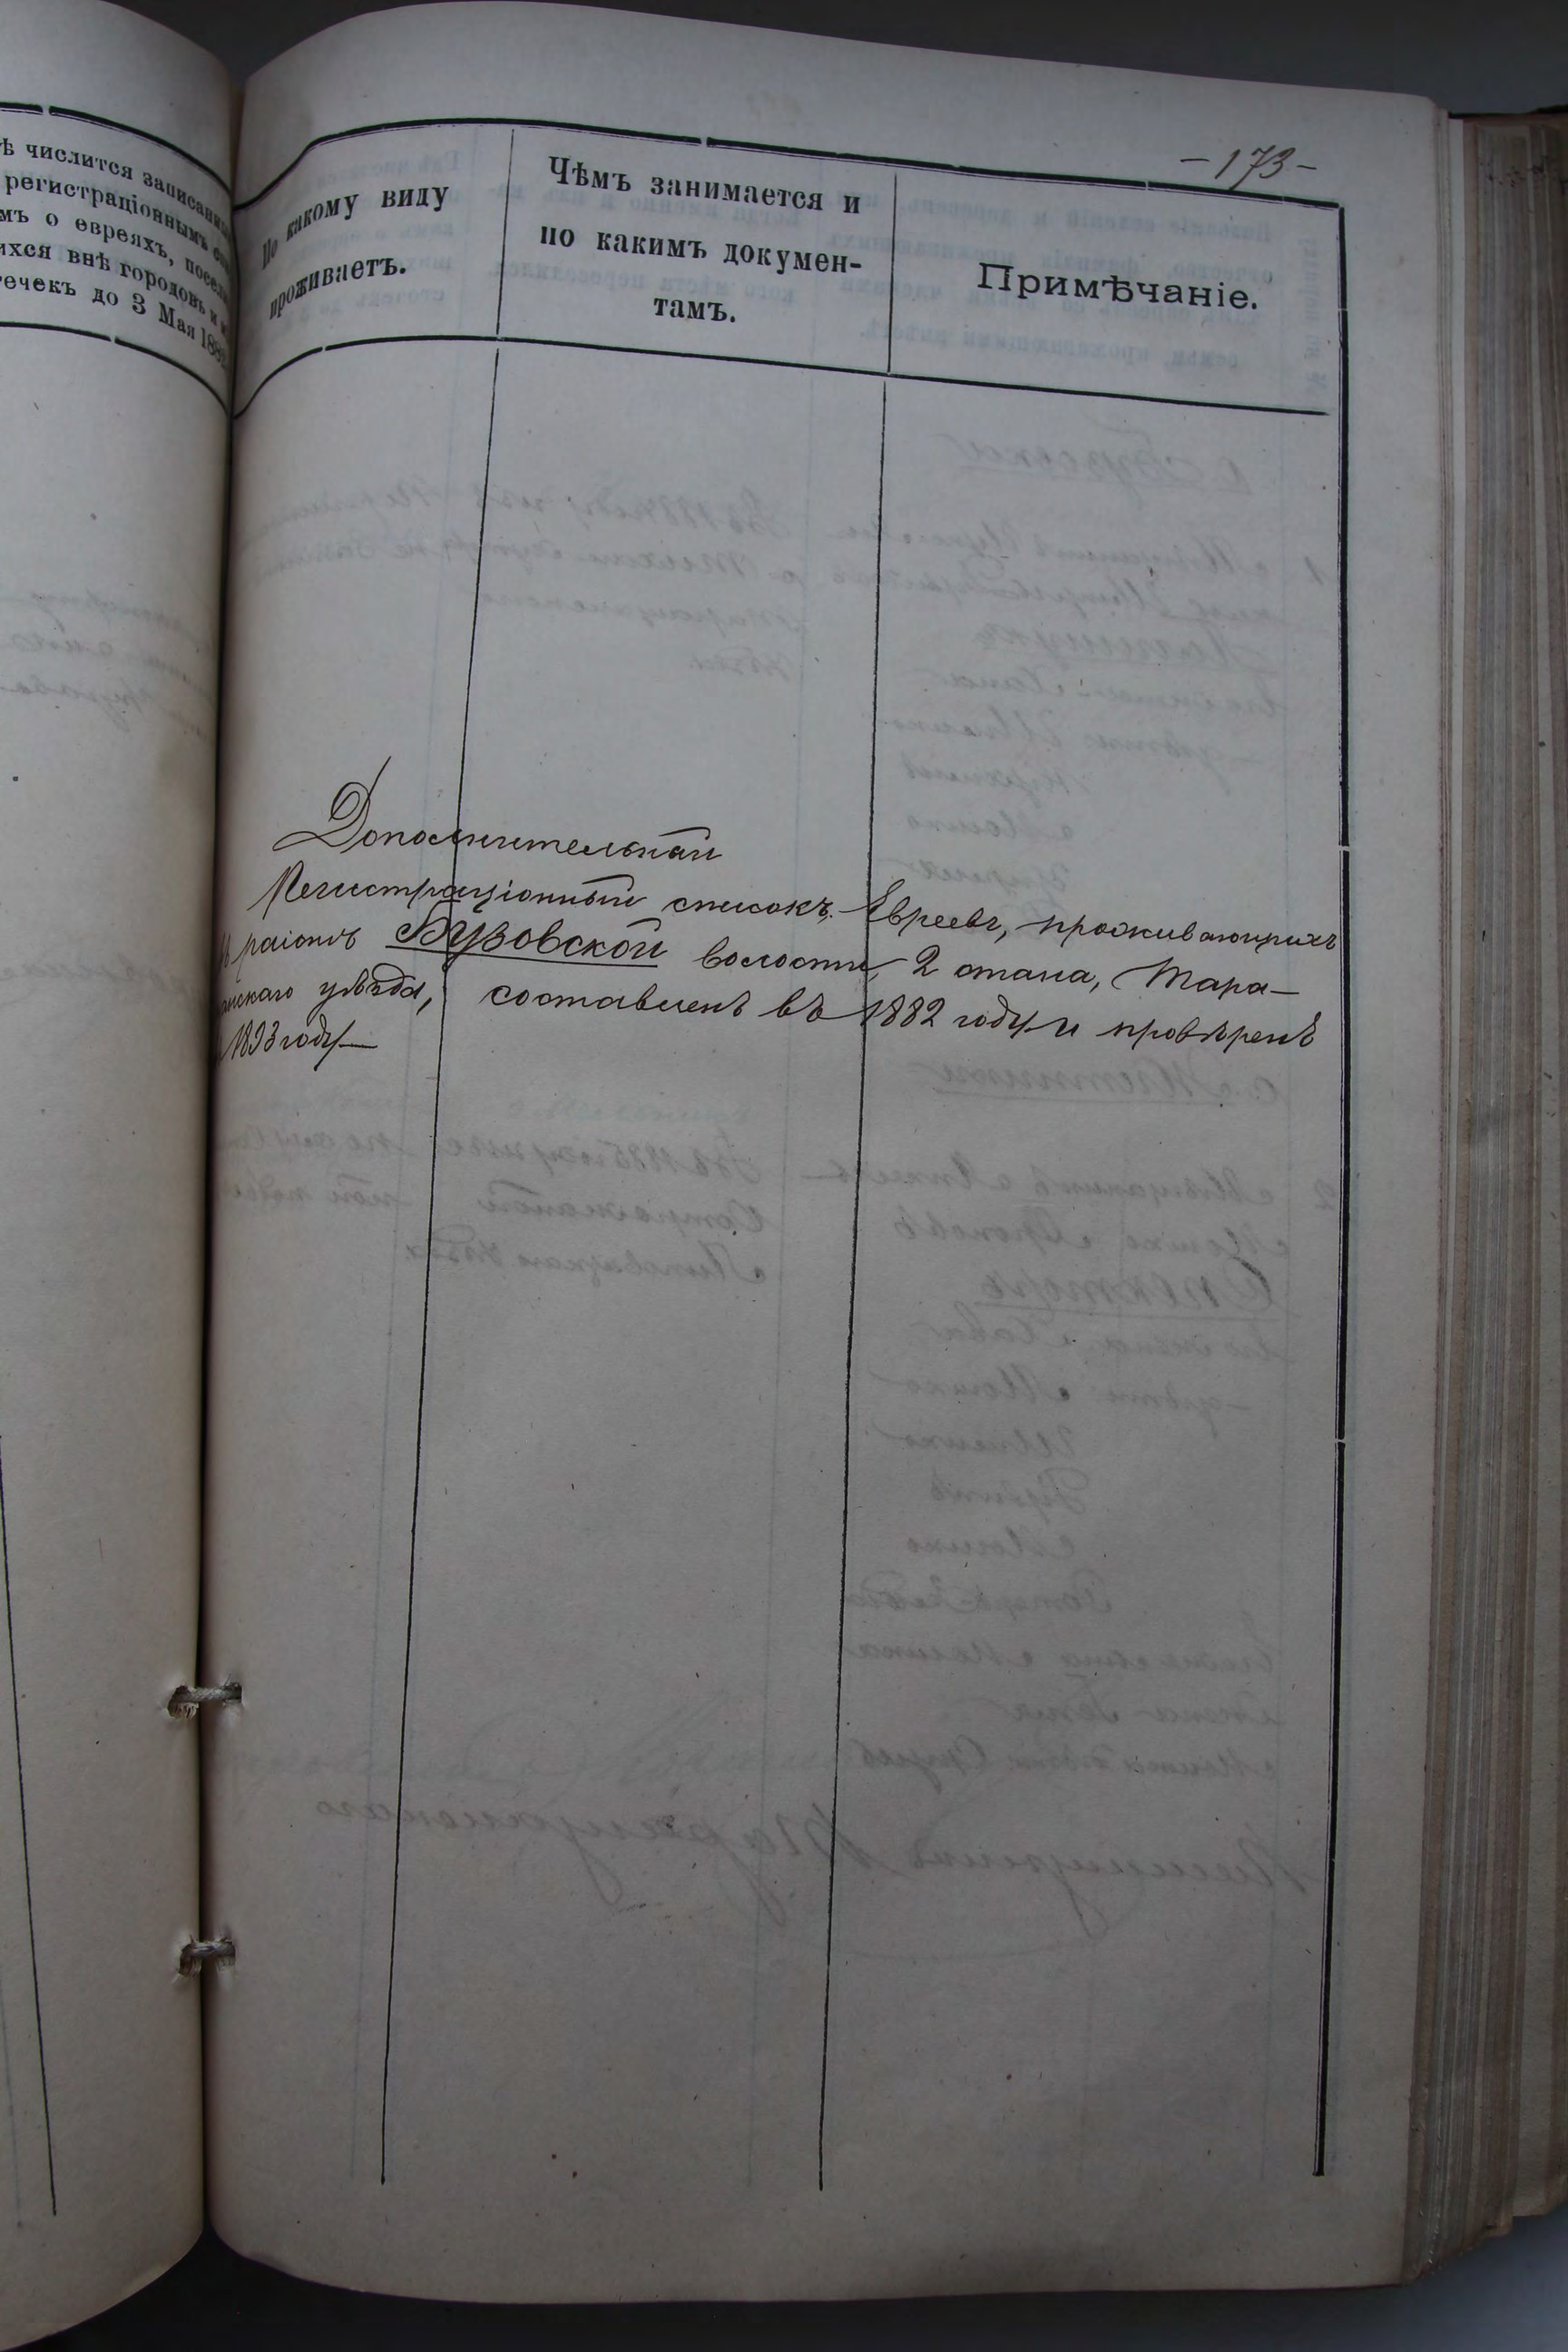 ѣ числится записанн
регистраціоннымъ сп
мъ о евреяхъ, посел
ихся внѣ городовъ и м
течекъ до 3 Мая 188
По какому виду
проживаетъ.
Чѣмъ занимается и
по какимъ докумен-
тамъ.
Примѣчаніе.
-173-
Дополнительный
Регистраціонный списокъ Евреевъ, проживающихъ
въ раіонѣ Бузовской волости, 2 стана, Тара-
щанскаго уѣзда, составленъ въ 1882 году и провѣренъ
1893 году